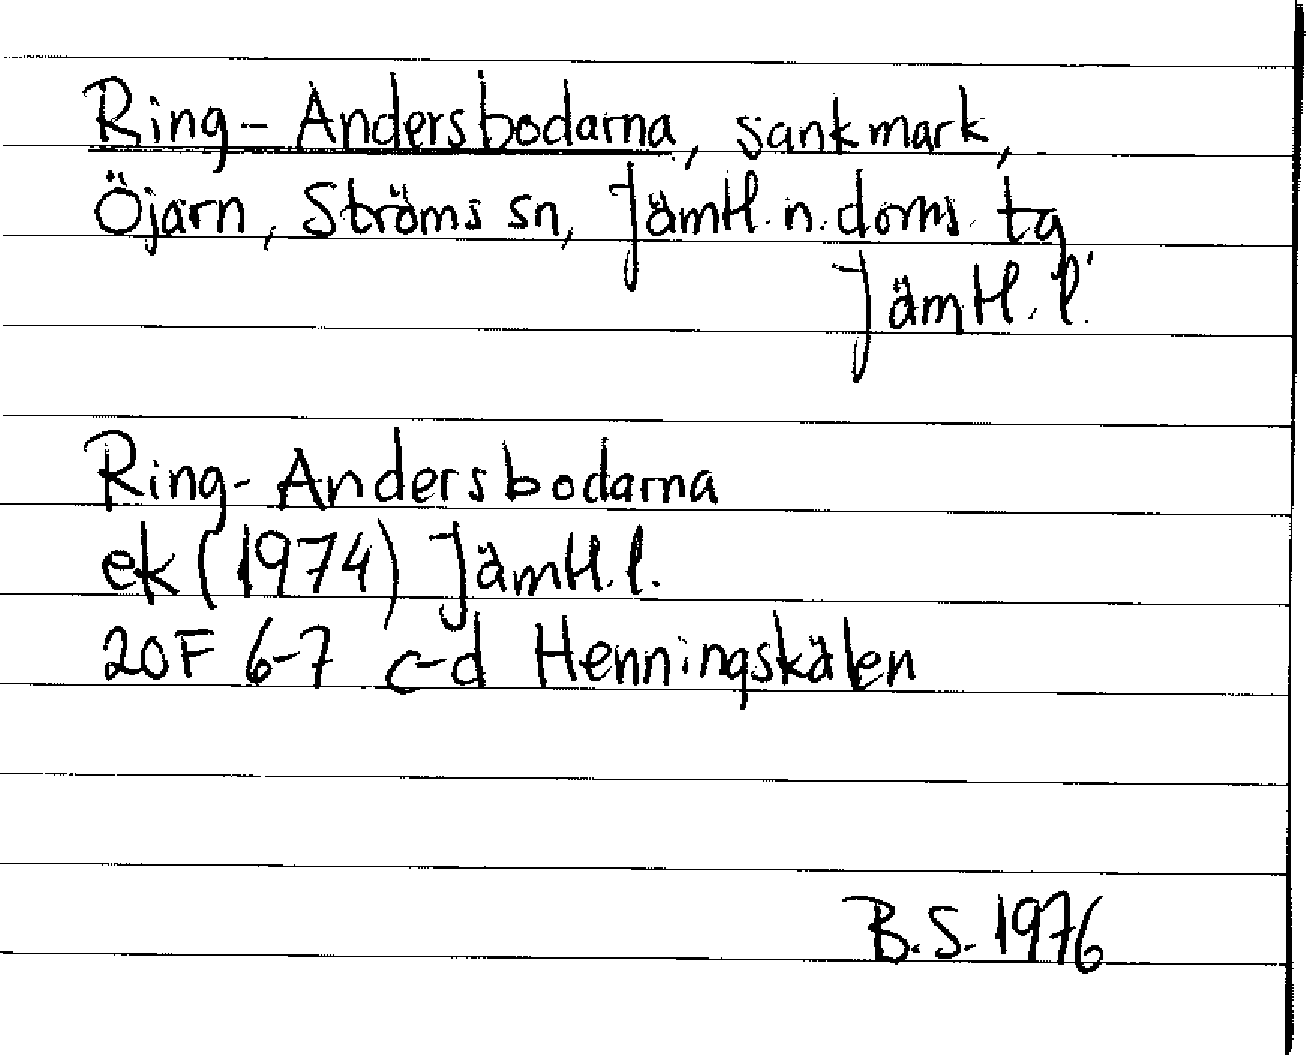 Ring-Andersbodarna, sankmark,
Öjarn, Ströms sn, Jämtl. n. doms. tg
Jämtl. l.
Ring-Andersbodarna
ek (1974) Jämtl. l.
20F 6-7 c-d Henningskälen
B.S. 1976